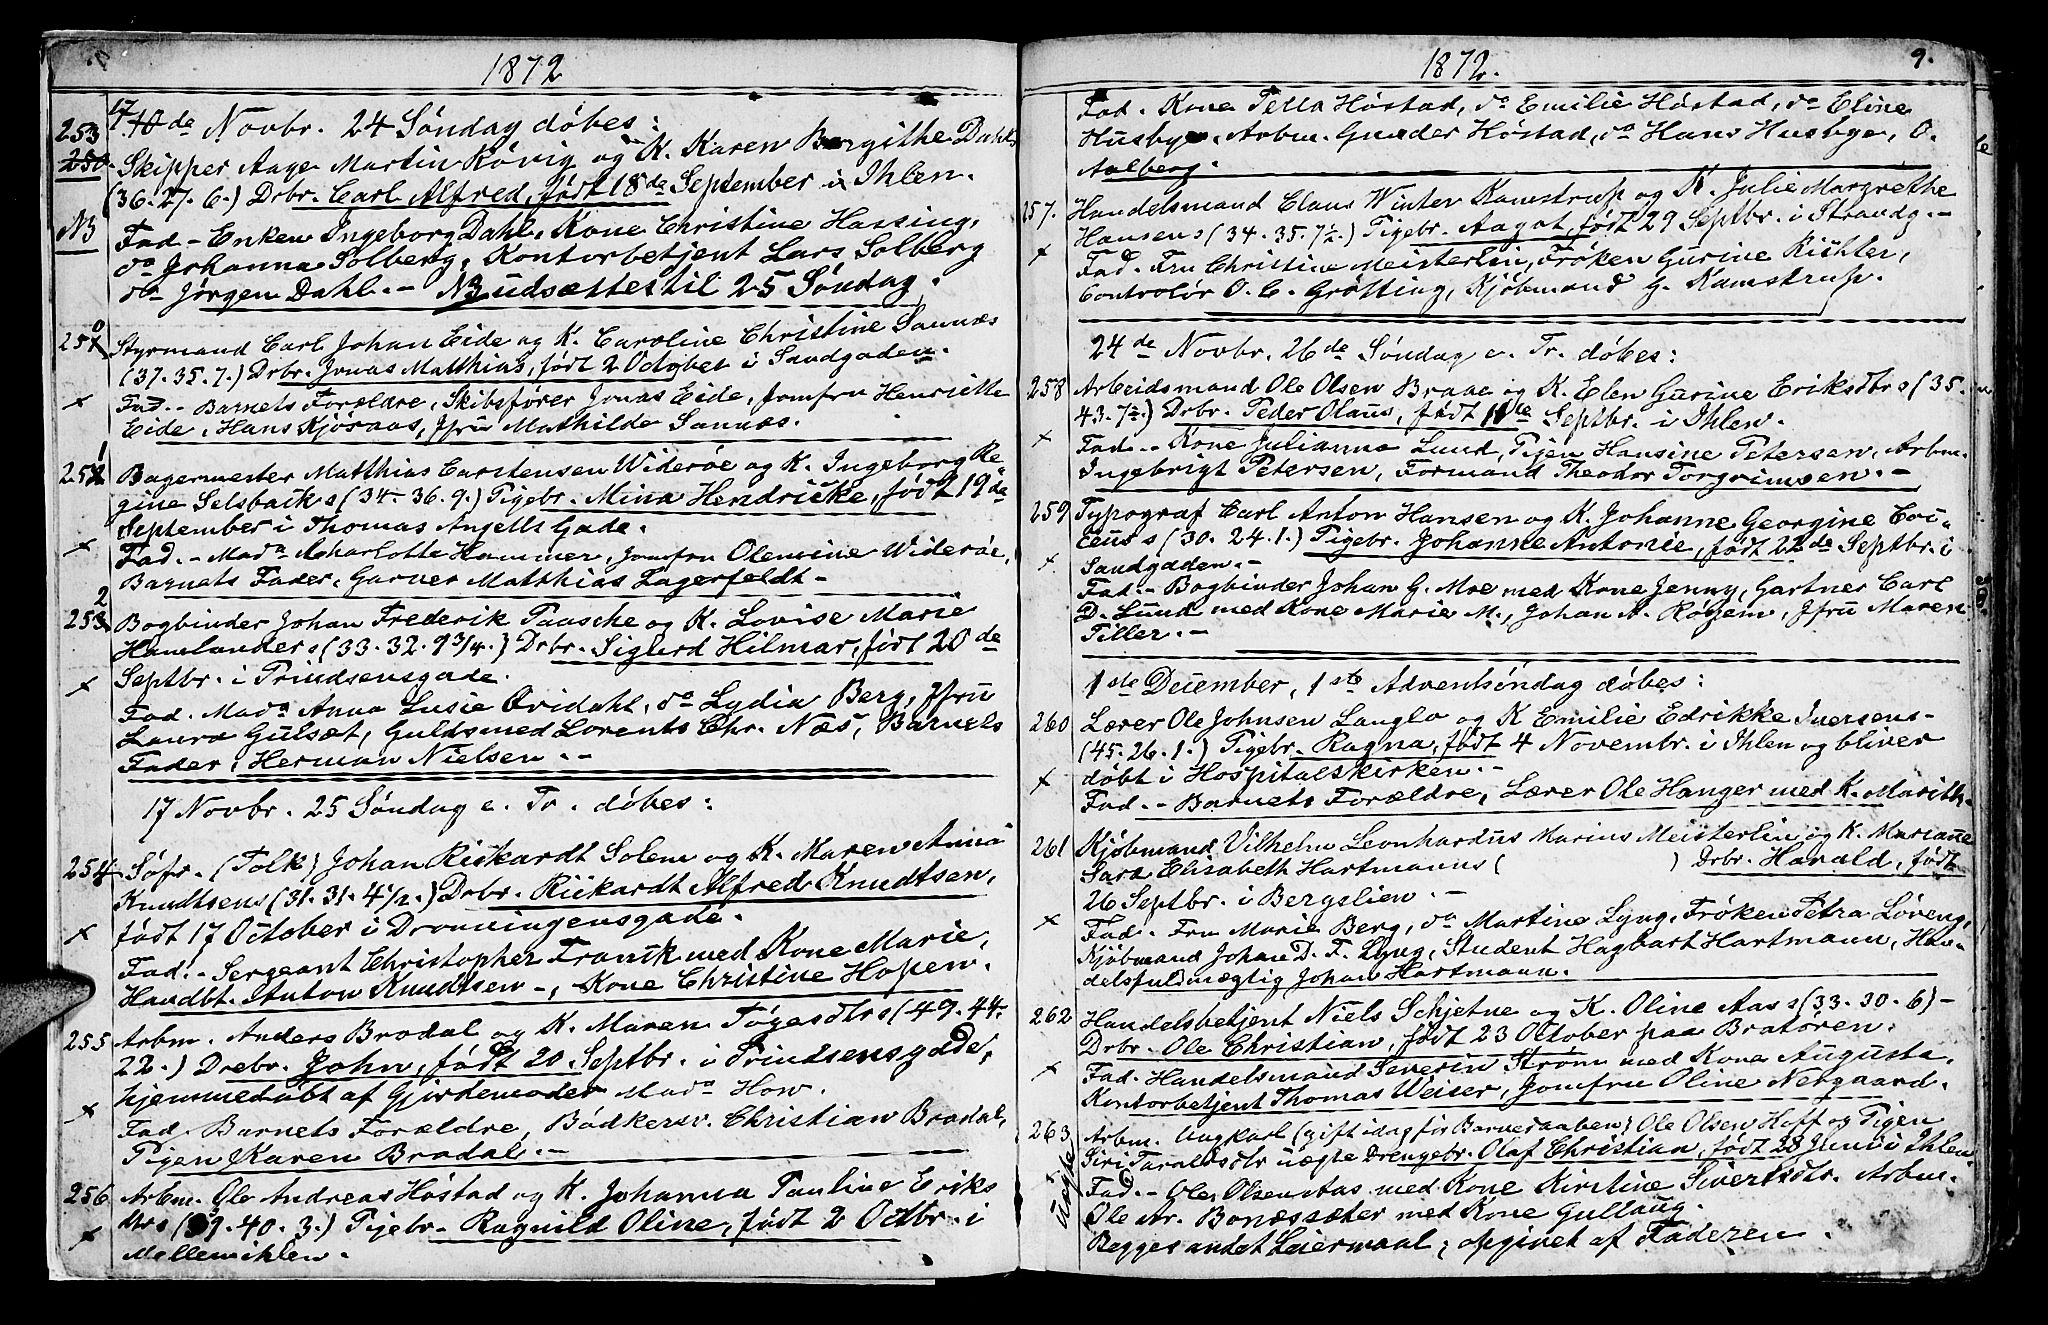 1872
17 10de Novbr. 24 Söndag döbes:
253 250. Skipper Aage Martin Rövig og K. Karen Bergithe Dahls
(36. 27. 6.) Drbr. Carl Alfred, födt 18de September i Ihlen.
NB Fad. - Enken Ingeborg Dahl, Kone Christine Hassing,
do Johanna Solberg, Kontorbetjent Lars Solberg
do Jörgen Dahl. - NB udsættes til 25 Söndag.
250 Styrmand Carl Johan Eide og K. Caroline Christine Sannæs
(37. 35. 7.) Drbr. Jonas Matthias, födt 2 October i Sandgaden.
x Fad. - Barnets Forældre, Skibsförer Jonas Eide, Jomfru Henriette
Eide, Hans Kjöraas, Jfru Mathilde Sannæs.
251 Bagermester Matthias Carstensen Wideröe og K. Ingeborg Re-
gine Selsbak s (34. 36. 9.) Pigebr. Mina Hendrikke, födt 19de
September i Thomas Angells Gade.
x Fad. - Mada Acharlotte Hammer, Jomfru Olenvine Wideröe,
Barnets Fader, Garver Matthias Lagerfeldt -
252 Bogbinder Johan Frederik Paasche og K. Lovise Marie
Hamlanders (33. 32. 9 3/4.) Drbr. Sigurd Hilmar, födt 20de
Septbr. i Prindsensgade.
x Fad. Mada Anna Lusie Qvidahl, do Lydia Berg, Jfru
Laura Gulsæt, Guldsmed Lorents Chr. Næs, Barnets
Fader, Herman Nielsen. -
17 Novbr. 25 Söndag e. Tr. döbes:
254 Söfr. (Tolk) Johan Rickardt Solem og K. Maren Anna
Knudtsens (31. 31. 4 1/2.) Drbr. Rickardt Alfred Knudtsen,
x födt 17 October i Dronningensgade.
Fad. - Sergeant Christopher Franck med Kone Marie,
Handbt. Anton Knudtsen -, Kone Christine Hopen.
255 Arbm. Anders Bradal og K. Maren Tögesdtr s (49. 44.
22.) Drebr. John, födt 20. Septbr. i Prindsensgade,
hjemmedöbt af Gjordemoder Mada How.
x Fad Barnets Forældre, Bödkersv. Christian Bradal,
Pigen Karen Bradal. -
256 Arbm. Ole Andreas Höstad og K. Johanna Pauline Eriks
dtr s (39. 40. 3.) Pigebr. Ragnild Oline, födt 2 Octbr. i
x Mellemihlen.
1872. 9.
Fad. Kone Pella Höstad, do Emilie Höstad, do Eline
Husbye, Arbm. Gunder Höstad, do Hans Husbye, O.
Aalberg.
257. Handelsmand Claus Winter Kamstrup og K. Julie Margrethe
Hansens (34. 35. 7 1/2.) Pigebr. Aagot, födt 29 Septbr. i Strandg. -
x Fad. Fru Christine Meisterlin, Fröken Gurine Richter,
Controlör O. C. Grötting, Kjöbmand G. Kamstrup.
24de Novbr. 26de Söndag e. Tr. döbes:
258 Arbeidsmand Ole Olsen Braae og K. Elen Gurine Eriksdtr s (35.
43. 7 1/2.) Drbr. Peder Olaus, födt 11te Septbr. i Ihlen.
x Fad. - Kone Julianna Lund, Pigen Hansine Petersen, Arbm.
Ingebrigt Petersen, Formand Theodor Torgrimsen. -
259 Typograf Carl Anton Hansen og K. Johanne Georgine Coi-
ceus s (30. 24. 1.) Pigebr. Johanne Antonie, födt 22de Septbr. i
x Sandgaden. -
Fad. - Bogbinder Johan G. Moe med Kone Jenny, Gartner Carl
D. Lund med Kone Marie M., Johan A. Röszem, Jfru Maren
Tiller. -
1ste December, 1ste Adventsöndag döbes:
260 Lærer Ole Johnsen Langlo og K Emilie Edrikke Iversens-
(45. 26. 1.) Pigebr. Ragna, födt 4 Novembr. i Ihlen og bliver
x döbt i Hospitalskirken. -
Fad. - Barnets Forældre, Lærer Ole Hanger med K. Marith.
261 Kjöbmand Vilhelm Leonhardus Marius Meisterlin og K. Mariane
Sara Elisabeth Hartmanns ( ) Drbr. Harald, födt
26 Septbr. i Bergslien. -
x Fad. - Fru Marie Berg, do Martine Lyng, Fröken Petra Löveng,
Kjöbmand Johan D. F. Lyng, Student Hagbart Hartmann, Han-
delsfuldmægtig Johan Hartmann.
262 Handelsbetjent Niels Schjetne og K. Oline Aas s (33. 30. 6) -
Drbr. Ole Christian, födt 23 October paa Bratören.
x Fad. Handelsmand Severin Ström med Kone Augusta,
Kontorbetjent Thomas Weiser, Jomfru Oline Nergaard.
263 Arbm. Ungkarl (gift idag för Barnedaaben) Ole Olsen Hoff og Pigen
Siri Taraldsdtr uægte Drengebr. Olaf Christian, födt 28 Juni i Ihlen
uægte Fad. - Ole Olsen Aas med Kone Kirstine Sivertsdtr. Arbm.
Ole Ar. Bonæssæter med Kone Gullaug.
Begges andet Leiermaal, opgivet af Faderen.